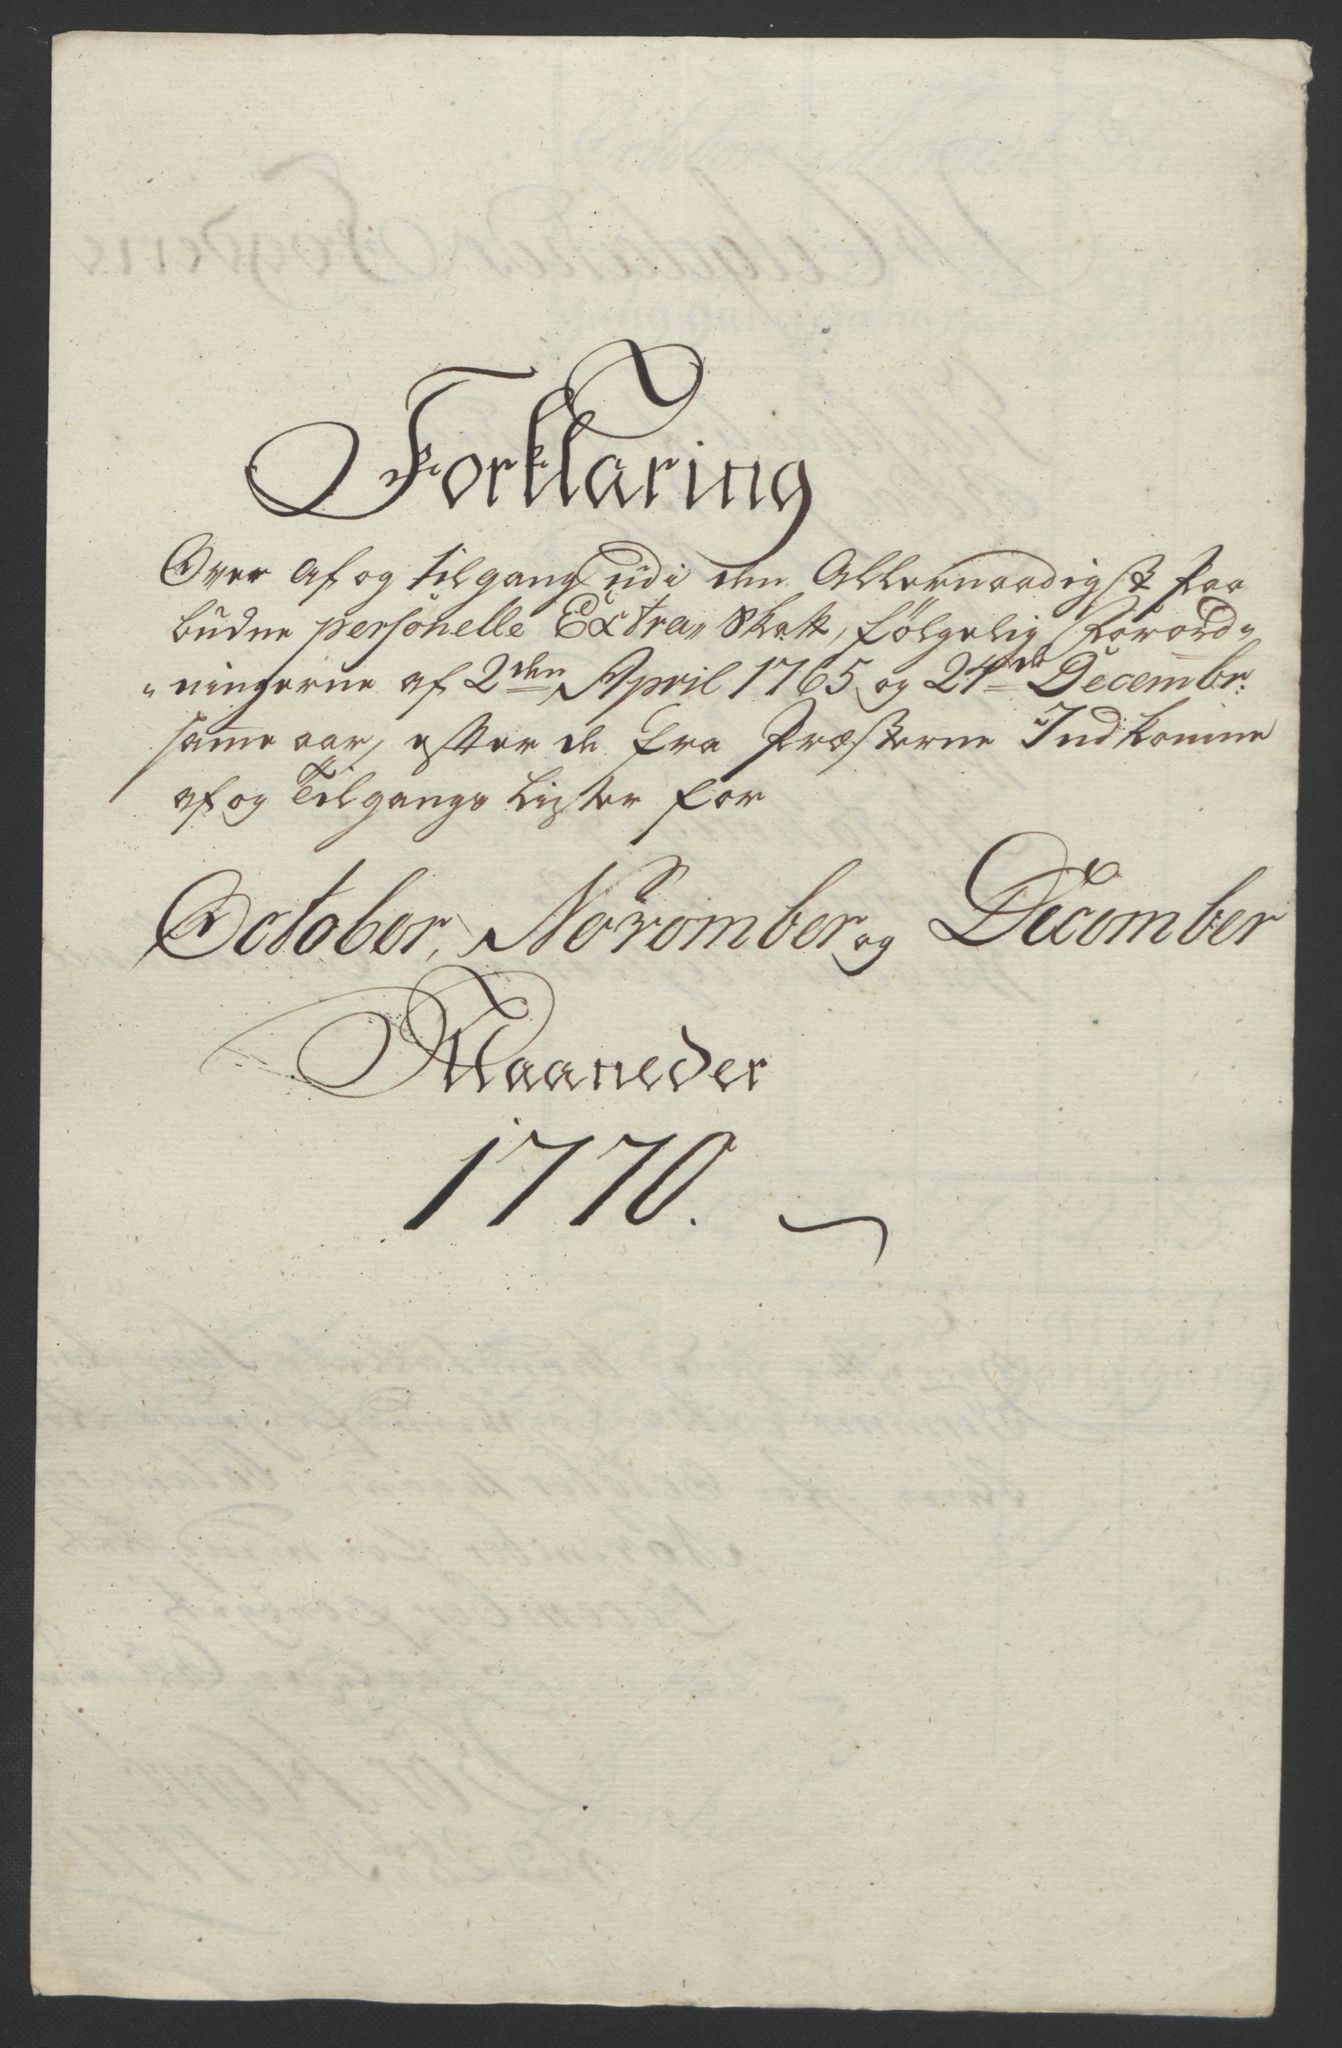 Forklaring
Over af og tilgang udi den Allernaadigst paa
budne personelle Extra„ Skatt, følgelig Forord„
„ningerne af 2den April 1765 og 24de Decembr:
samme aar, efter de fra Præsterne Indkomne
af og Tilgangs Lister for
October, November og December
Maaneder
1770.